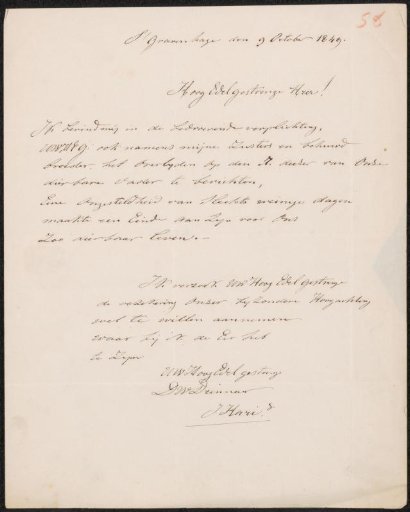 58
s'Gravenhage den 9 October 1849.
Hoog Edel gestrenge Heer!
Ik bevind mij in de bedroevende verpligting,
UWHEG. ook namens mijne Zusters en behuwd
broeder, het Overlyden op den dezer van Onze
dierbare Vader te berichten,
Eene Ongesteldheid van Slechts weinige dagen
maakte een Einde aan Zijn voor Ons
Zoo dierbaar leven.—
Ik verzoek UW Hoog Edel gestrenge
de verzekering Onzer byzondere Hoogachting
wel te willen aannemen
waar bij ik de Eer heb
te Zijn
UW Hoog Edel gestreng
DWDienaar